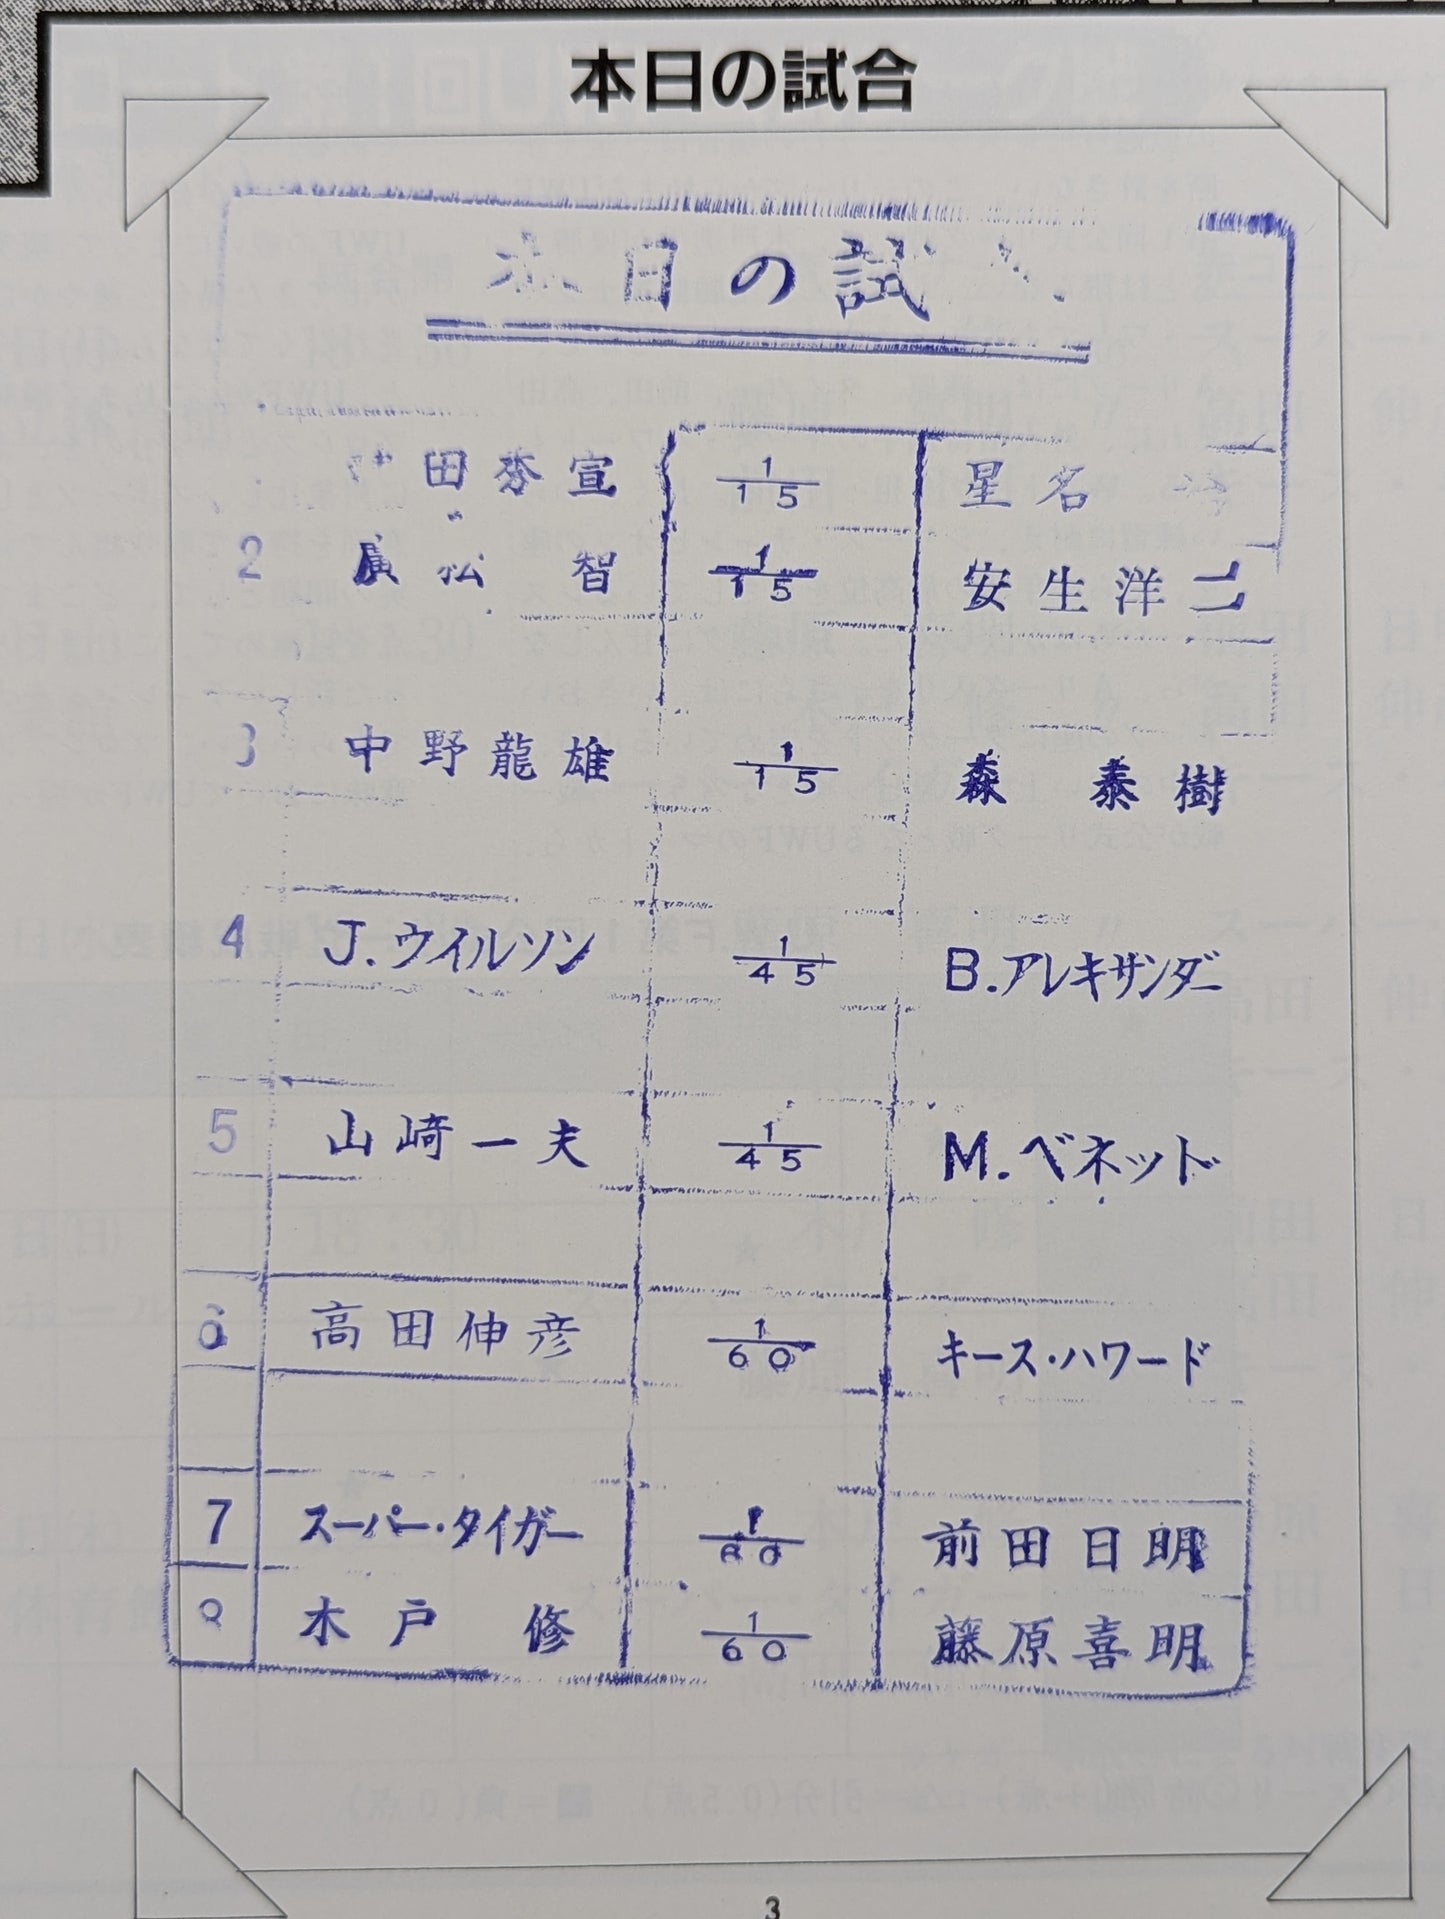 本日の試合
本日の試
田秀宣 1/15 星名
2 廣松 智 1/15 安生洋二
3 中野龍雄 1/15 森 泰樹
4 J.ウイルソン 1/45 B.アレキサンダー
5 山崎一夫 1/45 M.ベネット
6 高田伸彦 1/60 キース・ハワード
7 スーパー・タイガー 1/60 前田日明
木戸 修 1/60 藤原喜明
3